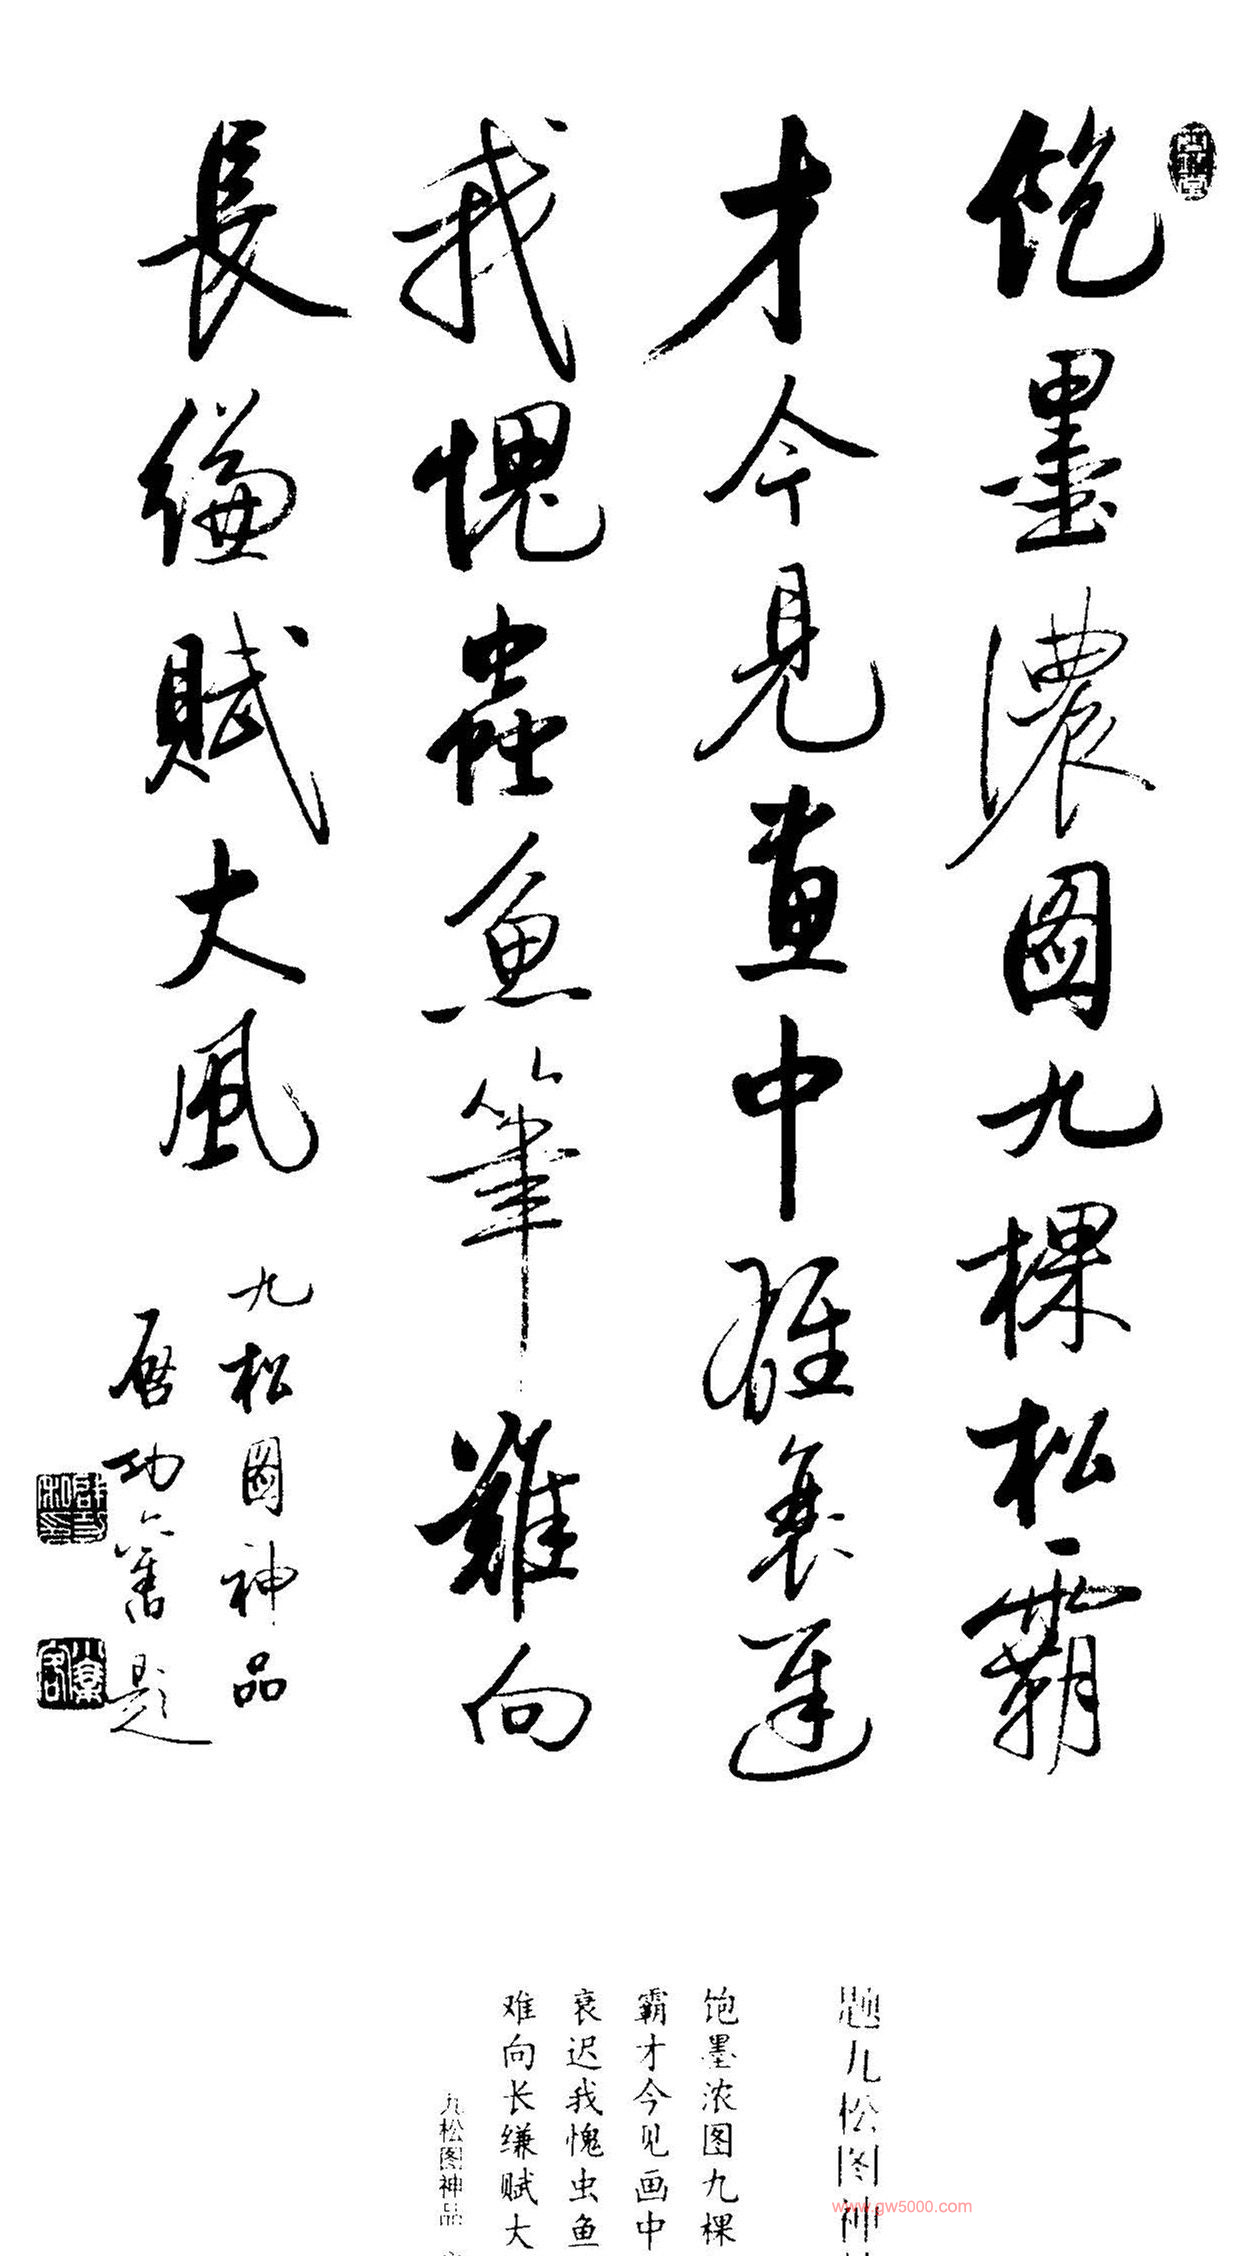 饱墨濃圖九棵松霸
才今見畫中雄衰遲
我愧蟲魚筆難向
長縑賦大風
九松圖神品
启功舊題
题九松图神
饱墨浓图九棵
霸才今见画中
衰迟我愧虫鱼
难向长缣赋大
九松图神品
www.gw5000.com